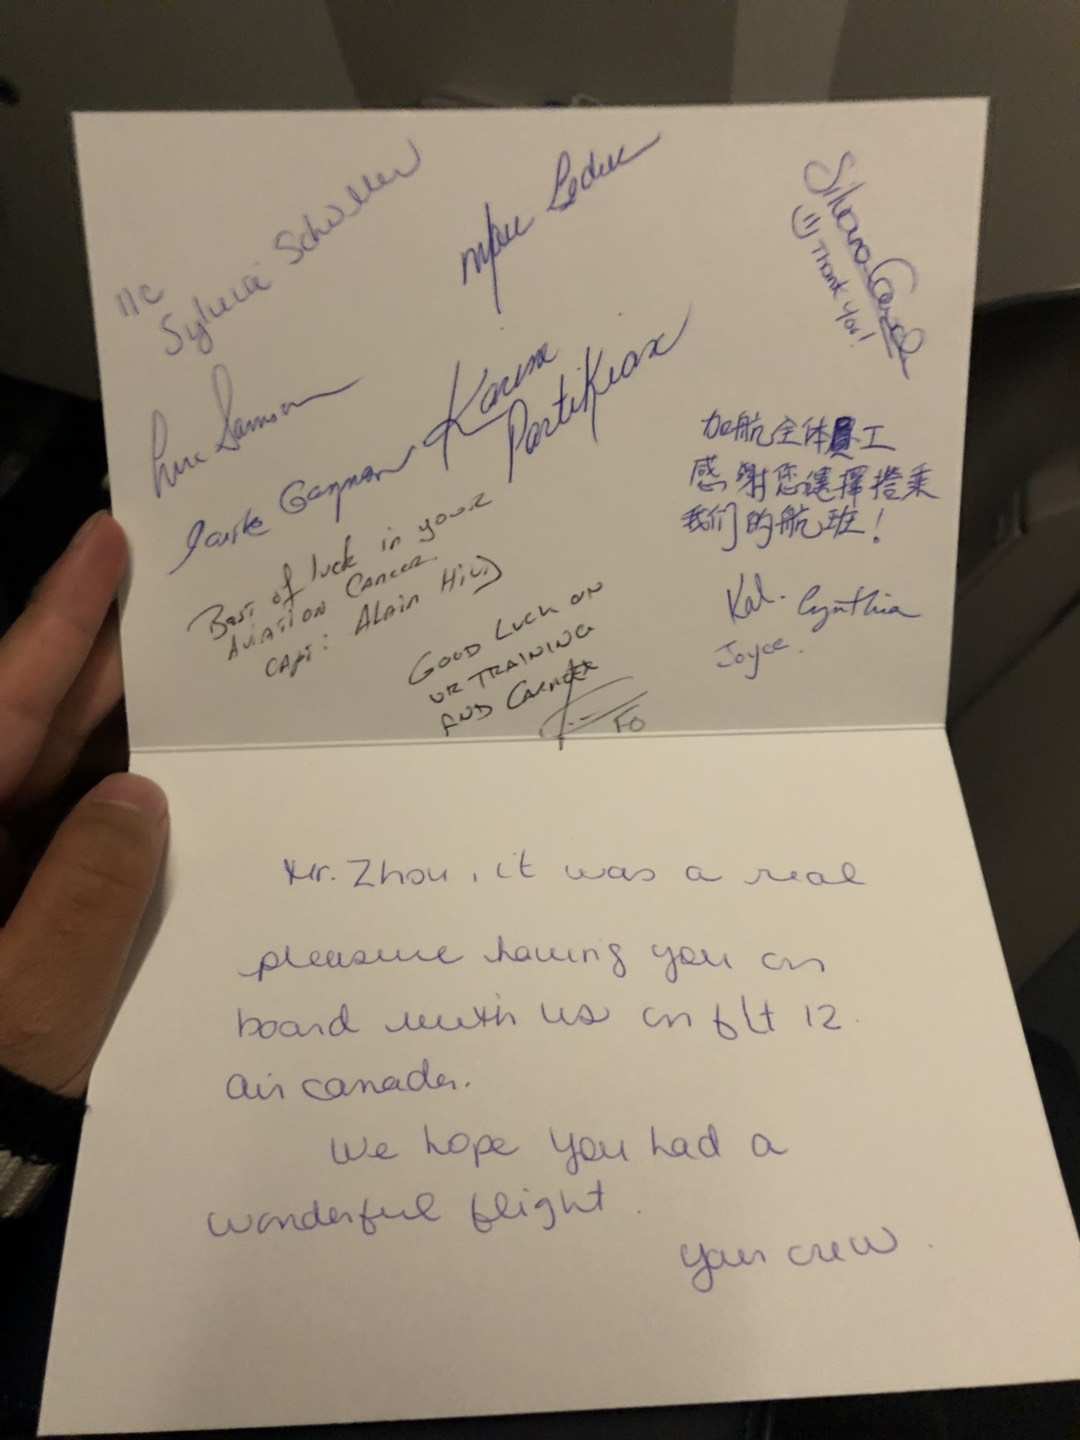 Sylvia Schuller
Silvana
Thank You!
Karine
Partikian
加航全体員工
感謝您選擇搭乘
我们的航班!
Best of luck in your
Aviation Career
Capt: Alain
Good Luck on
ur training
and Career
FO
Kal. Cynthia
Joyce.
Mr. Zhou, it was a real
pleasure having you on
board with us on flt 12.
air canada.
We hope you had a
wonderful flight.
Your crew.